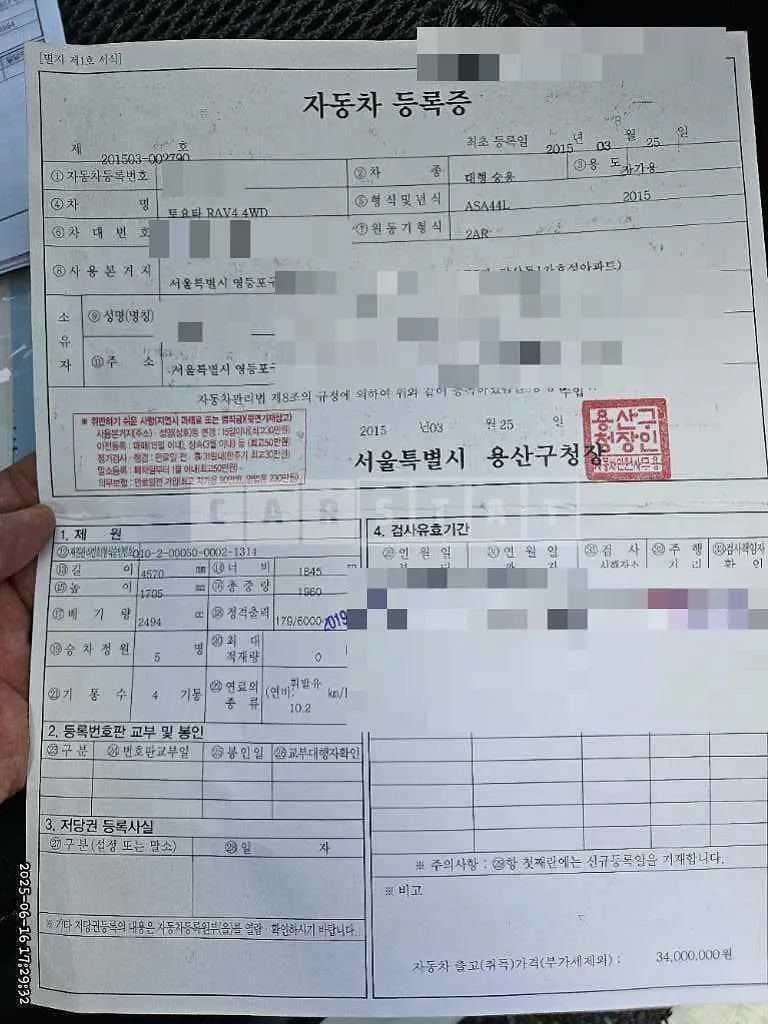 [별지 제1호 서식]
자동차 등록증
제 201503-002790 호
최초 등록일 2015 년 03 월 25 일
①자동차등록번호 ②차 종 대형 승용 ③용 도 자가용
④차 명 토요타 RAV4 4WD ⑤형식및년식 ASA44L 2015
⑥차대번호 ⑦원동기형식 2AR
⑧사용본거지 서울특별시 영등포구
소유자 ⑨성명(명칭)
⑪주 소 서울특별시 영등포구
자동차관리법 제8조의 규정에 의하여 위와 같이
※ 위반하기 쉬운 사항(지연시 과태료 또는 범칙금)
2015 년03 월25 일
서울특별시 용산구청장
용산구
청장인
CARSTAT
1. 제 원
010-2-00050-0002-1314
⑬길 이 4570 mm ⑭너 비 1845
⑮높 이 1705 mm ⑯총중량 1960
⑰배기량 2494 cc ⑱정격출력 179/6000
2019
⑲승차정원 5 명 ⑳최대적재량 0
㉑기통수 4 기통 ㉒연료의 종류 휘발유 (연비: 10.2 km/l
2. 등록번호판 교부 및 봉인
㉓구분 ㉔번호판교부일 ㉕봉인일 ㉖교부대행자확인
3. 저당권 등록사실
㉗구분(설정 또는 말소) ㉘일 자
※기타 저당권등록의 내용은 자동차등록원부(을)를 열람 확인하시기 바랍니다.
4. 검사유효기간
㉙연월일 ㉚연월일 ㉛검 사 ㉜주 행 ㉝검사책임자
확 인
※ 주의사항 : ㉙항 첫째란에는 신규등록일을 기재합니다.
※ 비고
자동차 출고(취득)가격(부가세제외) : 34,000,000원
2025-06-16 17:29:32